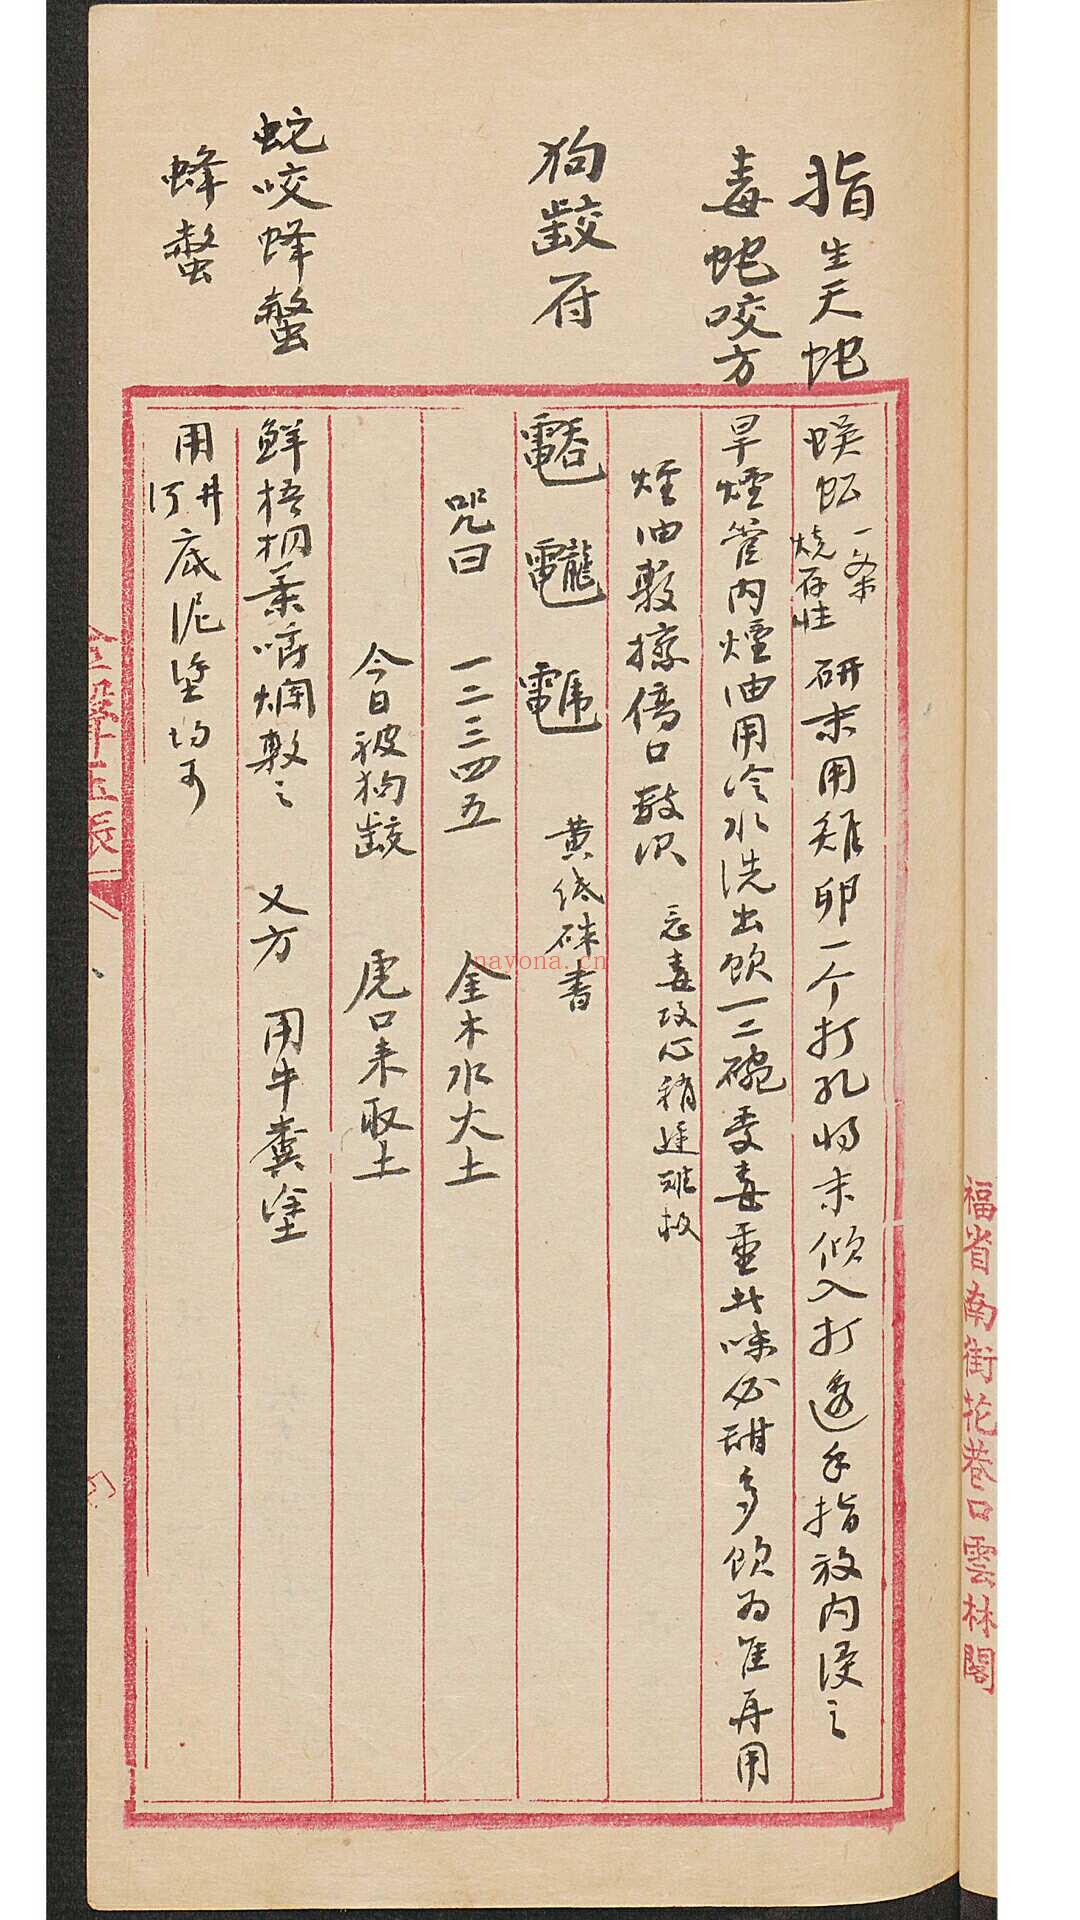 指生天蛇
蜈蚣一条烧存性研末用雞卵一个打孔將末傾入打透手指放内浸之
毒蛇咬方
旱煙管内煙油用冷水洗出飲一二碗受毒重此味必甜多飲为准再用
煙油敷擦傷口數次 忌毒攻心稍遲難救
狗齩符
黄纸硃書
咒曰 一二三四五 金木水火土
今日被狗齩 虎口来取土
蛇咬蜂螫
鮮梧桐葉嚼爛敷之 又方 用牛糞塗
蜂螫
用井河底泥塗均可
福省南街花巷口雲林閣
nayona.cn